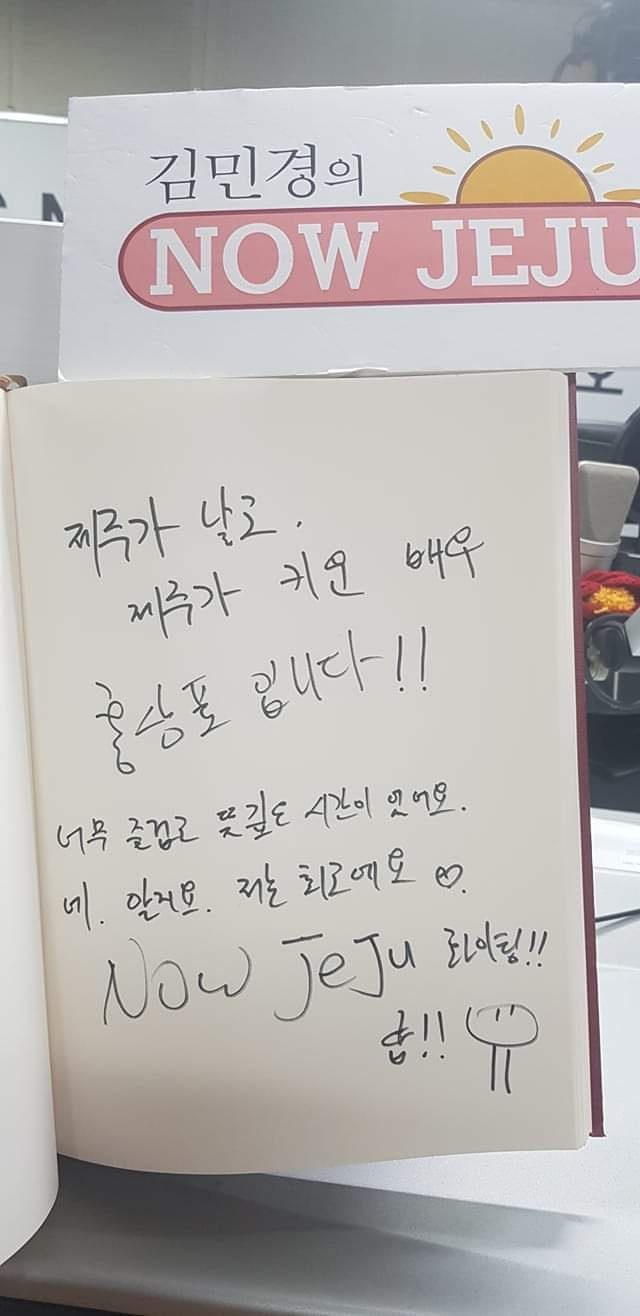 김민경의
NOW JEJU
제주가 낳고.
제주가 키운 배우
홍상표 입니다!!
너무 즐겁고 뜻깊은 시간이었어요.
네. 알려요. 저는 최고에요♡.
NOW JeJu 화이팅!!
얍!!